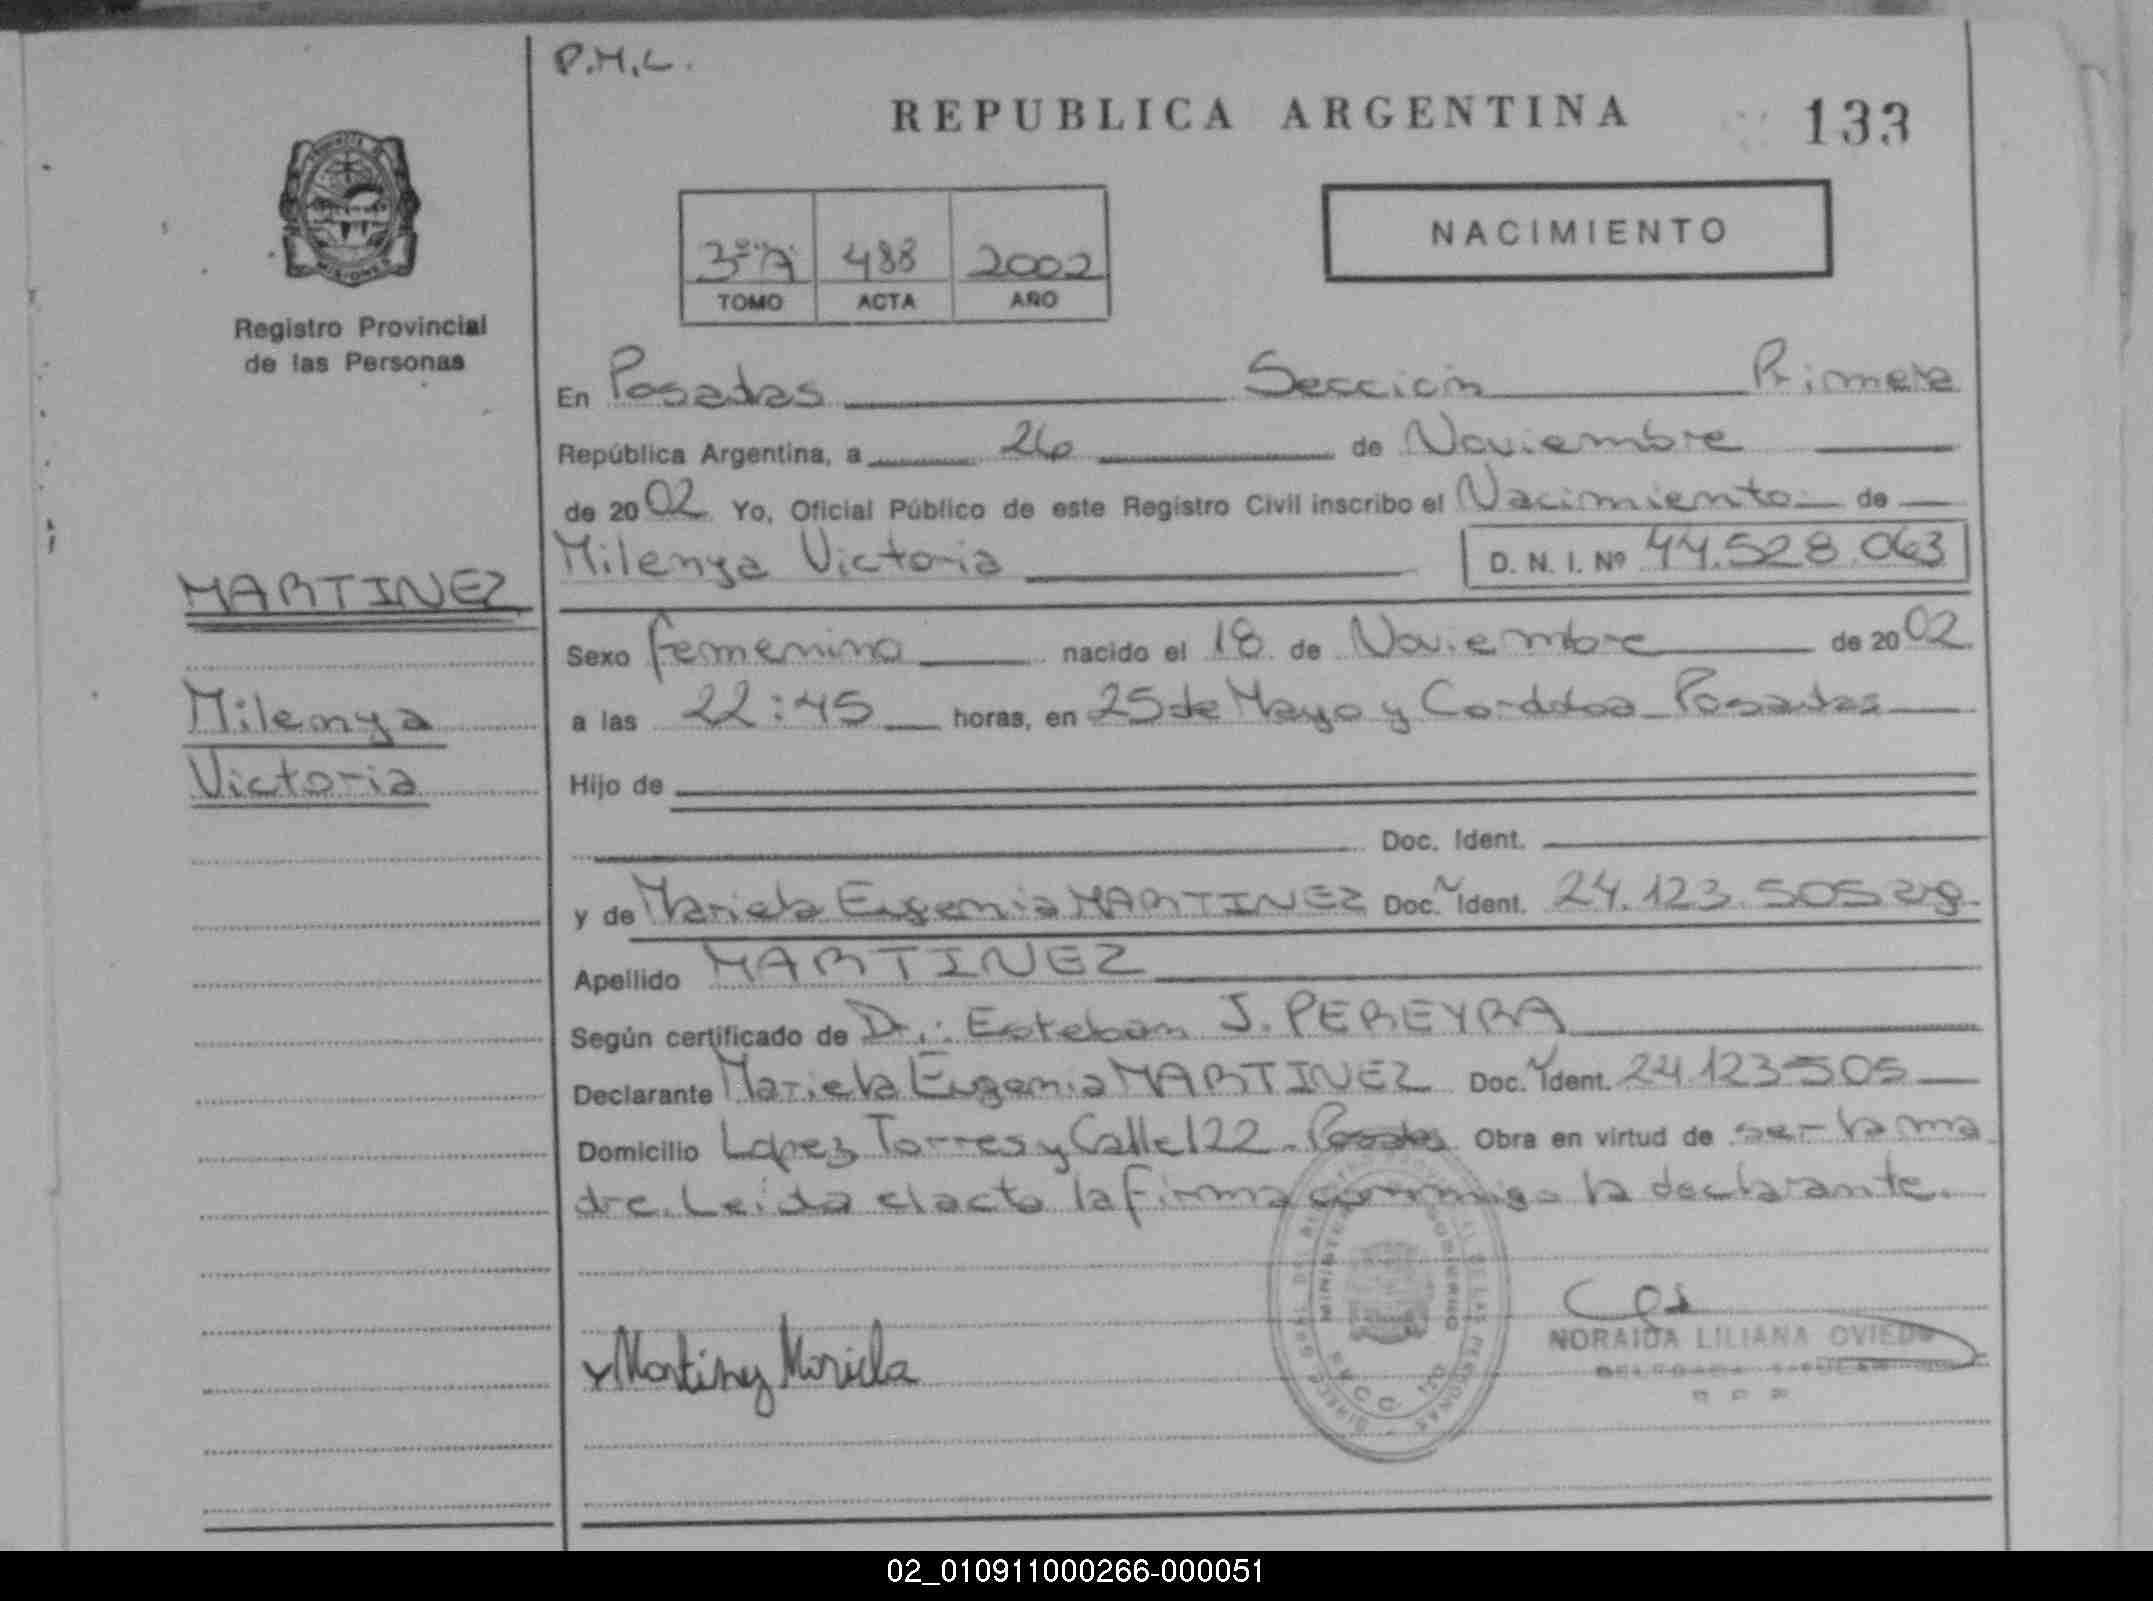 P.M.L.
REPUBLICA ARGENTINA 133
3º "A" 488 2002
TOMO ACTA AÑO
NACIMIENTO
MISIONES
Registro Provincial
de las Personas
En Posadas Sección Primera
República Argentina, a 26 de Noviembre
de 2002 Yo, Oficial Público de este Registro Civil inscribo el Nacimiento de
Milenya Victoria D. N. I. Nº 44.528.063
MARTINEZ
Milenya
Victoria
Sexo femenino nacido el 18 de Noviembre de 2002
a las 22:45 horas, en 25 de Mayo y Cordoba Posadas
Hijo de
Doc. Ident.
y de Mariela Eugenia MARTINEZ Doc. Ident. 24.123.505
Apellido MARTINEZ
Según certificado de Dr.: Esteban J. PEREYRA
Declarante Mariela Eugenia MARTINEZ Doc. Ident. 24.123.505
Domicilio Lopez Torres y Calle 122 - Posadas Obra en virtud de ser la ma
dre. Leida el acta la firma conmigo la declarante.
Martinez Mariela
NORAIDA LILIANA OVIEDO
02_010911000266-000051